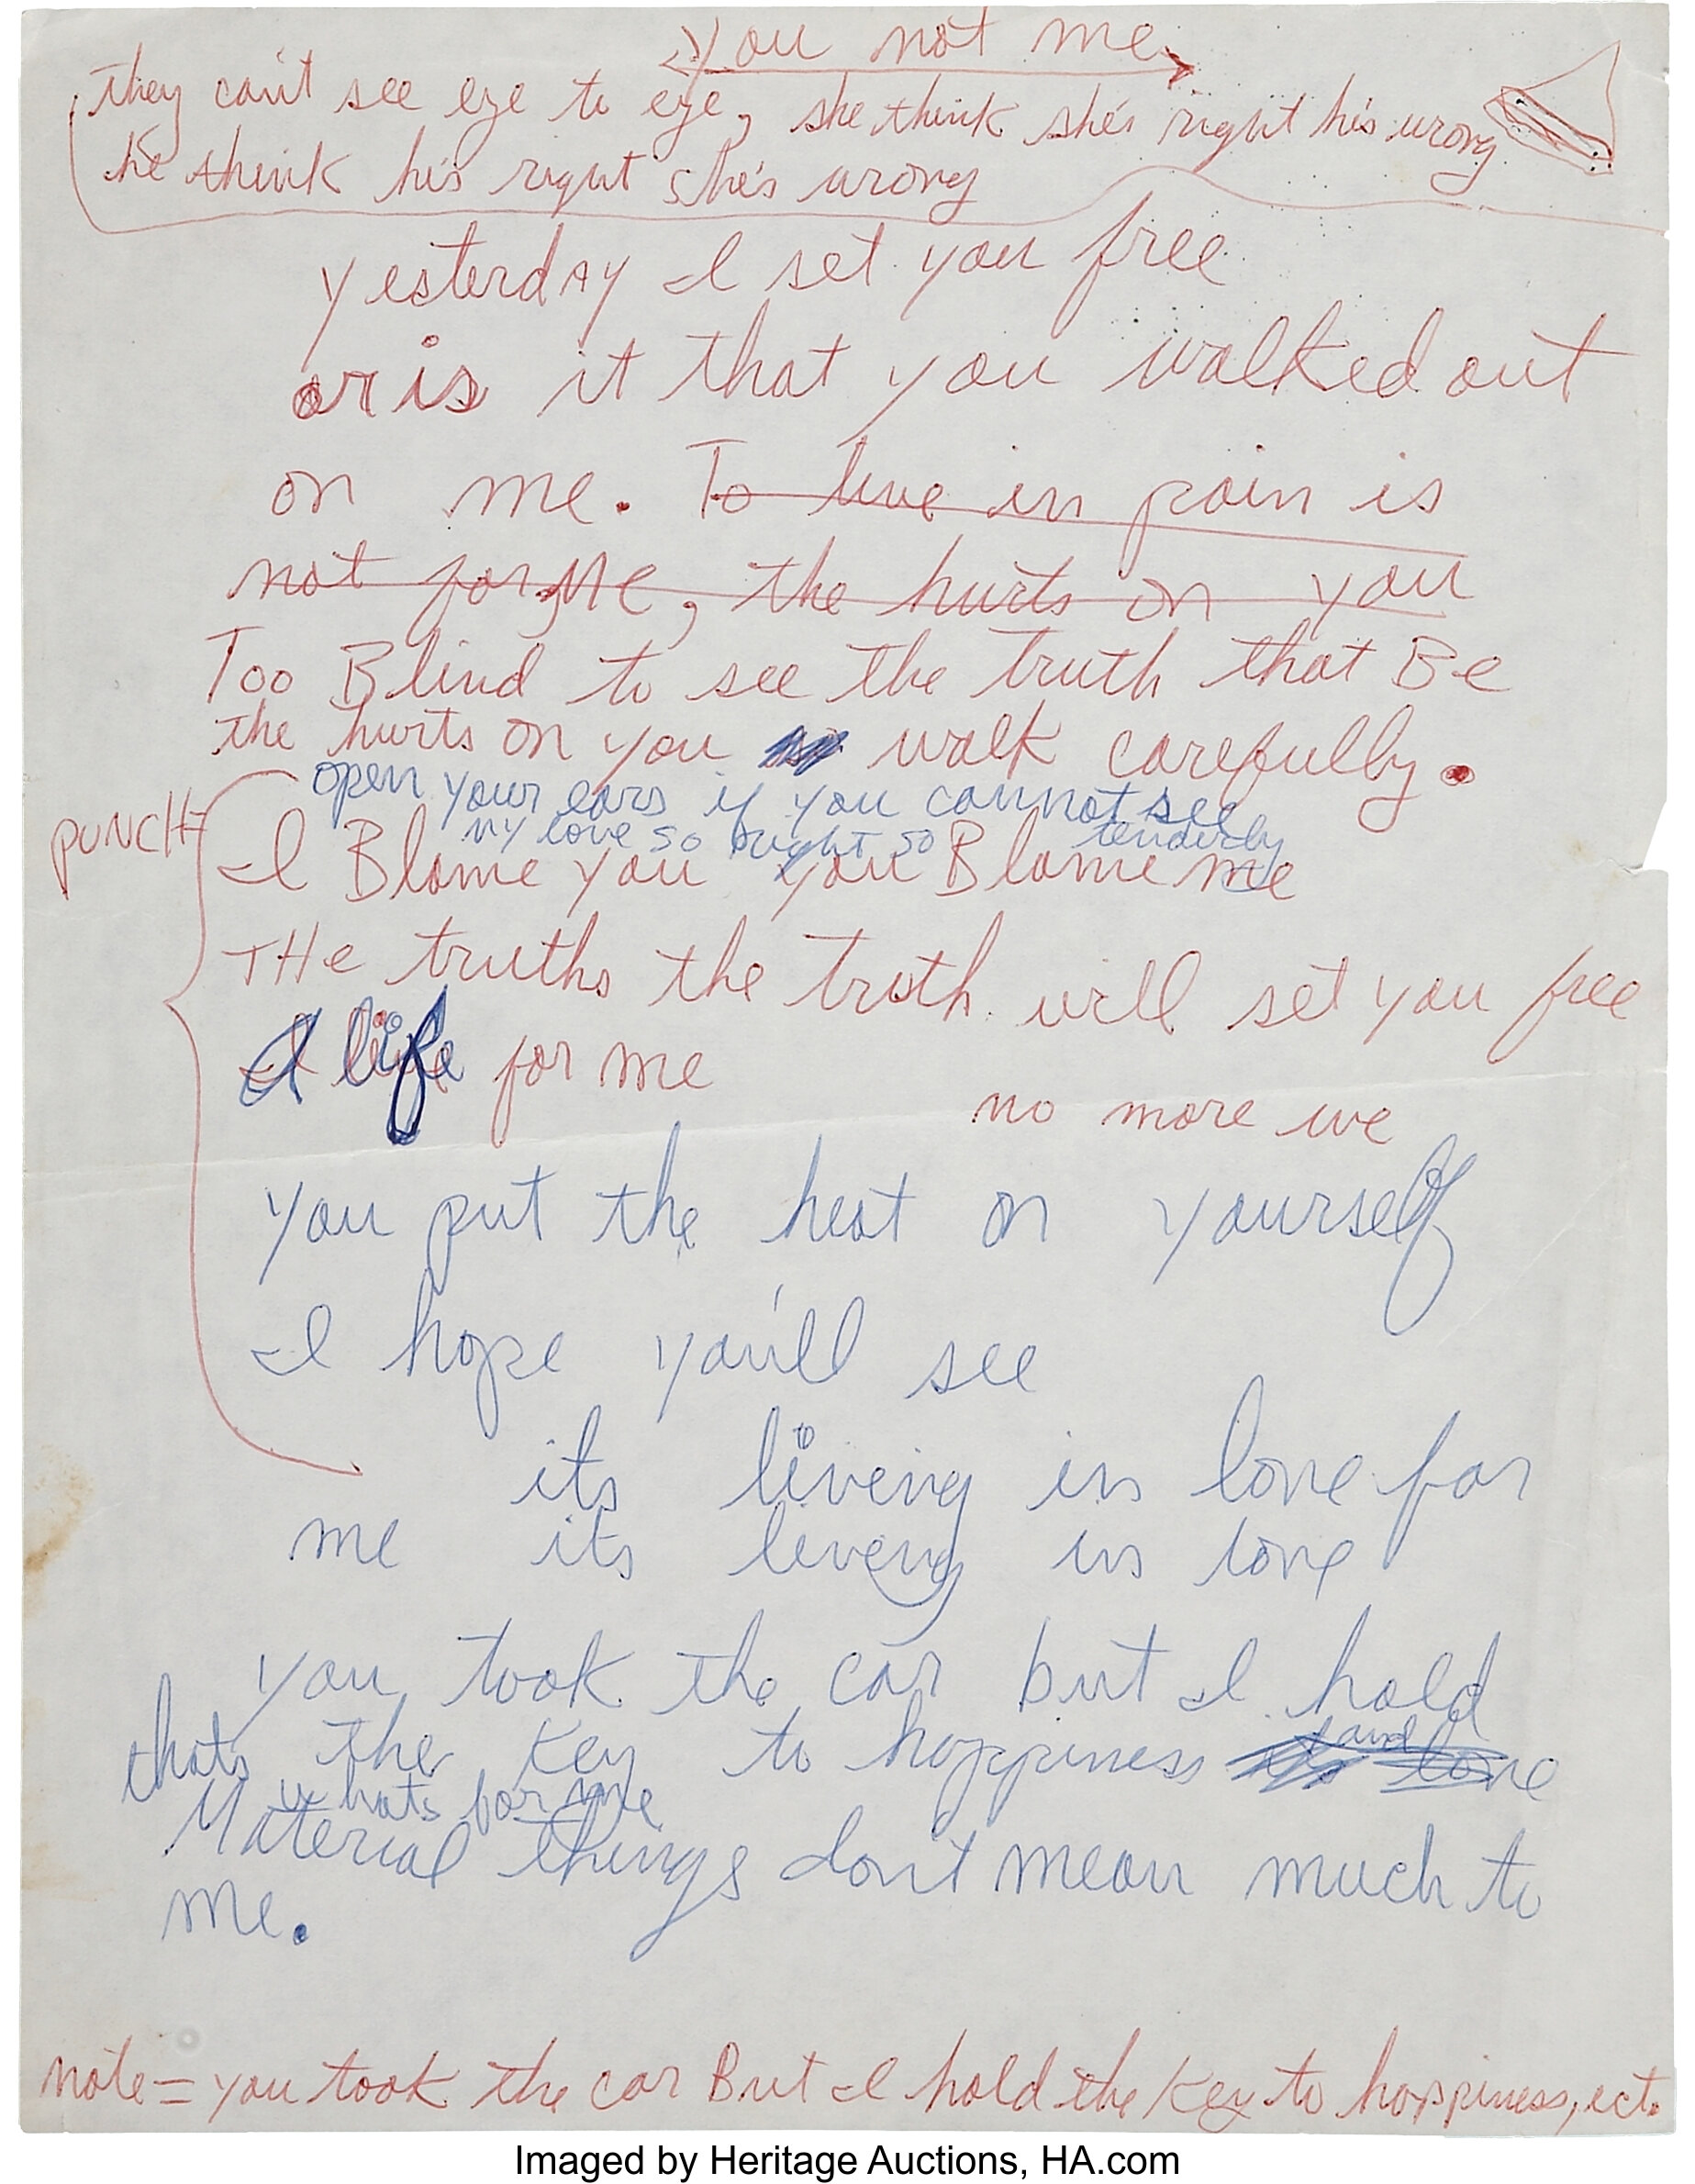 you not me
they cain't see eye to eye, she think she's right he's wrong
he think he's right she's wrong
yesterdAy I set you free
or is it that you walked out
on me. To live in pain is
not for Me, the hurts on you
Too Blind to see the truth that Be
the hurts on you walk carefully.
open your ears if you cannot see
my love so bright so tenderly
PUNCH
I Blame you you Blame me
THe truths the truth will set you free
life for me
no more we
you put the heat on yourself
I hope you'll see
its liveing in love for
me its liveing in love
you took the car but I hold
thats the Key to happiness and love
whats for me
Material things don't mean much to
me.
note = you took the car But I hold the Key to happiness, ect.
Imaged by Heritage Auctions, HA.com